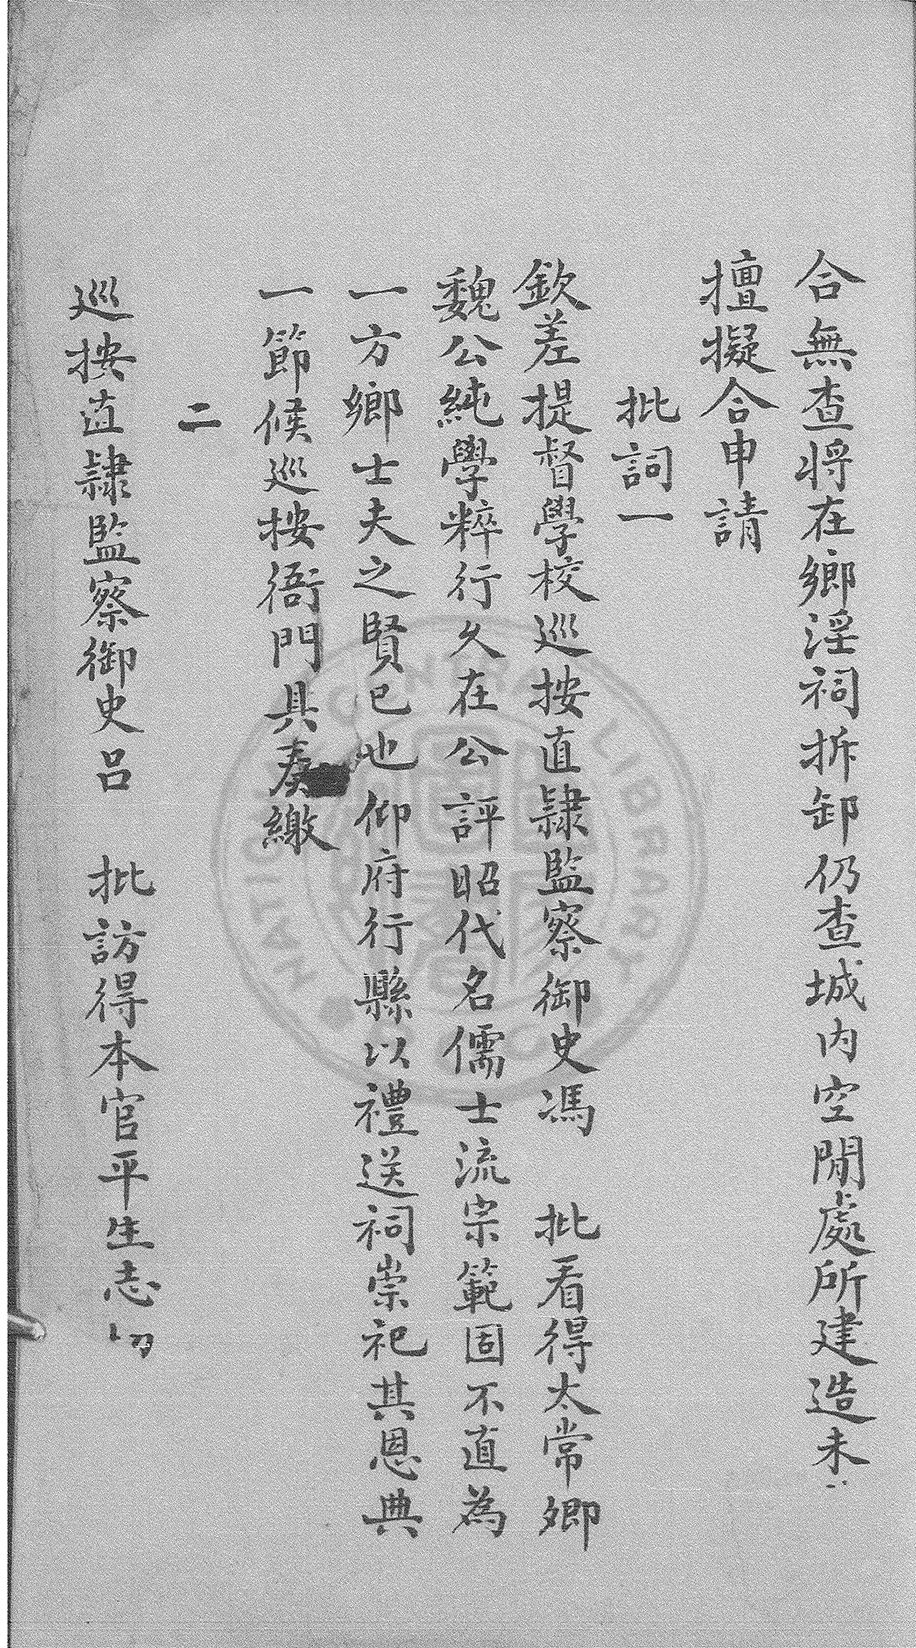 合無查將在鄉淫祠拆卸仍查城內空閒處所建造未
擅擬合申請
批詞一
欽差提督學校巡按直隸監察御史馮　批看得太常卿
魏公純學粹行久在公評昭代名儒士流宗範固不直為
一方鄉士夫之賢已也仰府行縣以禮送祠崇祀其恩典
一節候巡按衙門具奏繳
二
巡按直隸監察御史呂　批訪得本官平生志
NATIONAL CENTRAL LIBRARY